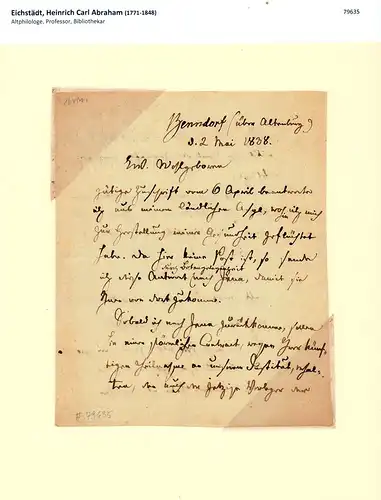 Eichstädt, Heinrich Carl Abraham (1771-1848)
79635
Altphilologe. Professor, Bibliothekar
Benndorf (über Altenburg)
d. 2 Mai 1838.
Ew. Wohlgeboren
gütige Zuschrift vom 6 April beantworte
ich aus meinem ländlichen Asyl, wohin ich mich
zur Herstellung meiner Gesundheit geflüchtet
habe. Da hier keine Post ist, so sende
ich diese Antwort durch Gelegenheit nach Jena, damit sie
Ihnen von dort zukomme.
Sobald ich nach Jena zurückkomme, sollen
Sie einen förmlichen Contract, wegen Ihrer künf-
tigen Theilnahme an unserem Institut, erhal-
ten, den auch der jetzige Verleger der
# 79635